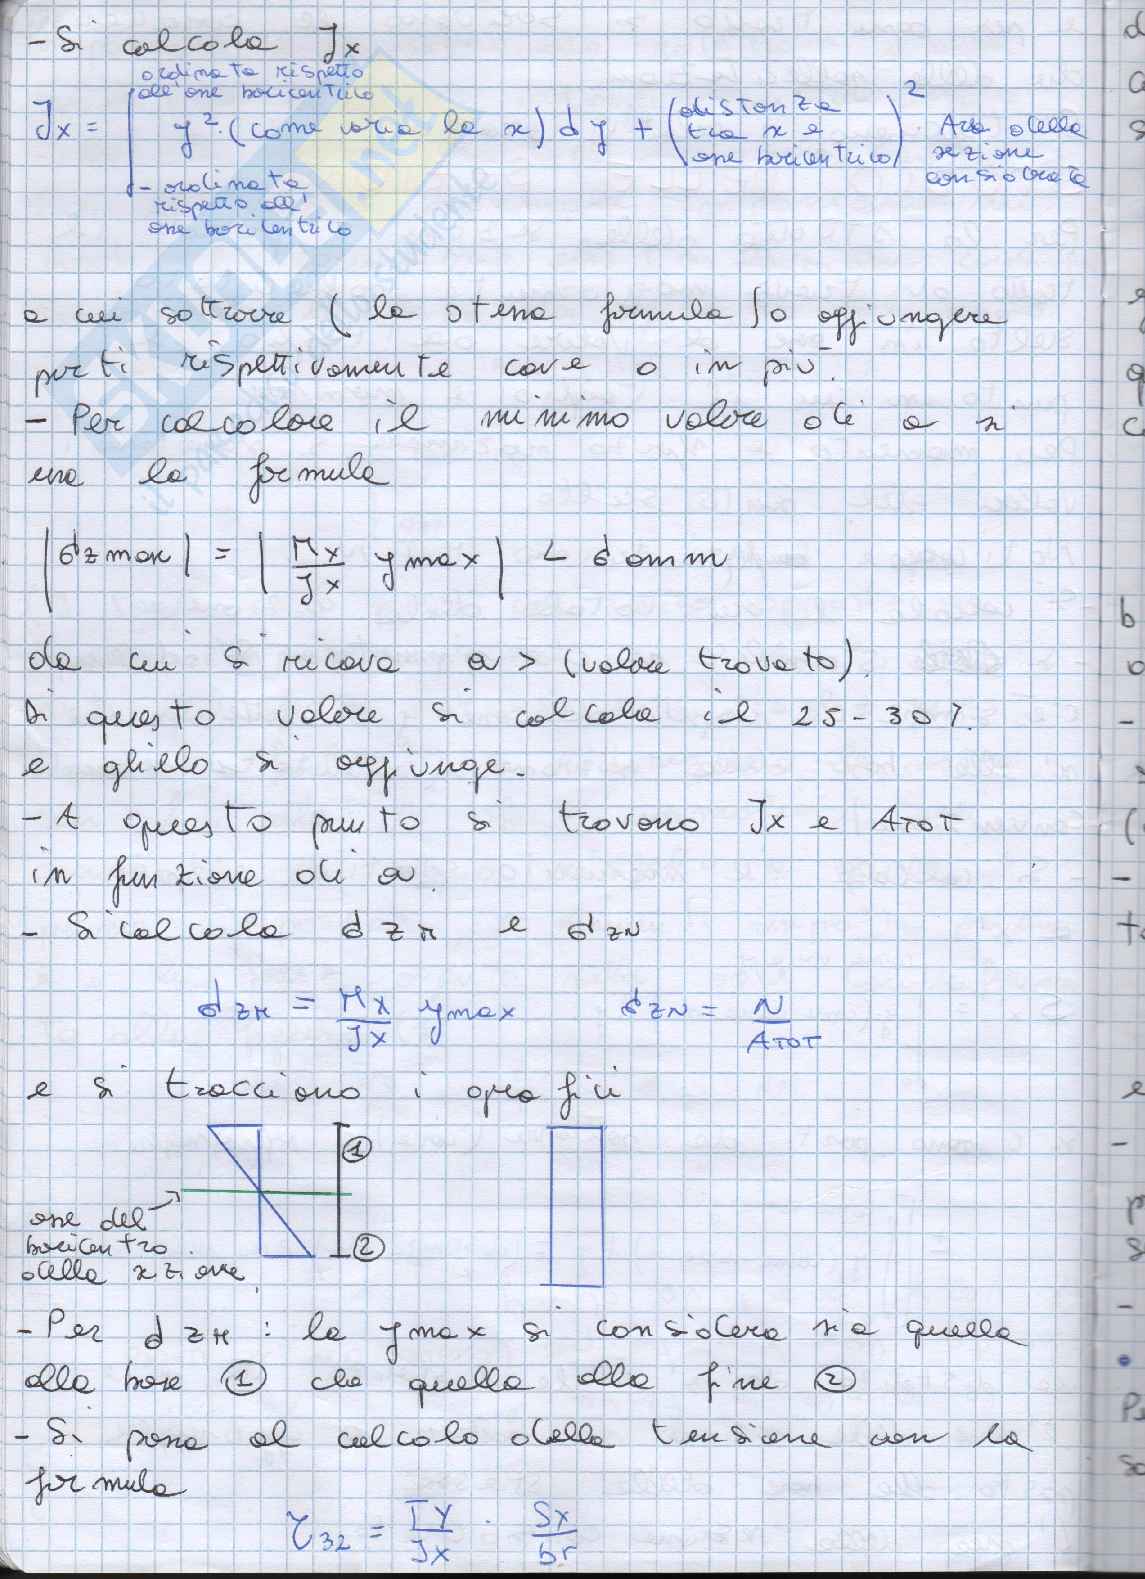 - Si calcola Jx
ordinata rispetto
all'asse baricentrico
Jx = ∫ y². (come varia la x) dy + (distanza tra x e asse baricentrico)² . Area della sezione considerata
- ordinata
rispetto all'
asse baricentrico
a cui sottrarre (la stessa formula) o aggiungere
parti rispettivamente cave o in più.
- Per calcolare il minimo valore di a si
usa la formula
|σz max| = |Mx/Jx ymax| < σ amm
da cui si ricava a > (valore trovato).
Di questo valore si calcola il 25-30%
e glielo si aggiunge.
- A questo punto si trovano Jx e ATOT
in funzione di a.
- Si calcola σzM e σzN
σzM = Mx/Jx ymax σzN = N/ATOT
e si tracciano i grafici
1
asse del
baricentro
della sezione
2
- Per σzM : la ymax si considera sia quella
alla base ① che quella alla fine ②
- Si passa al calcolo della tensione con la
formula
τ32 = Ty/Jx . Sx/br